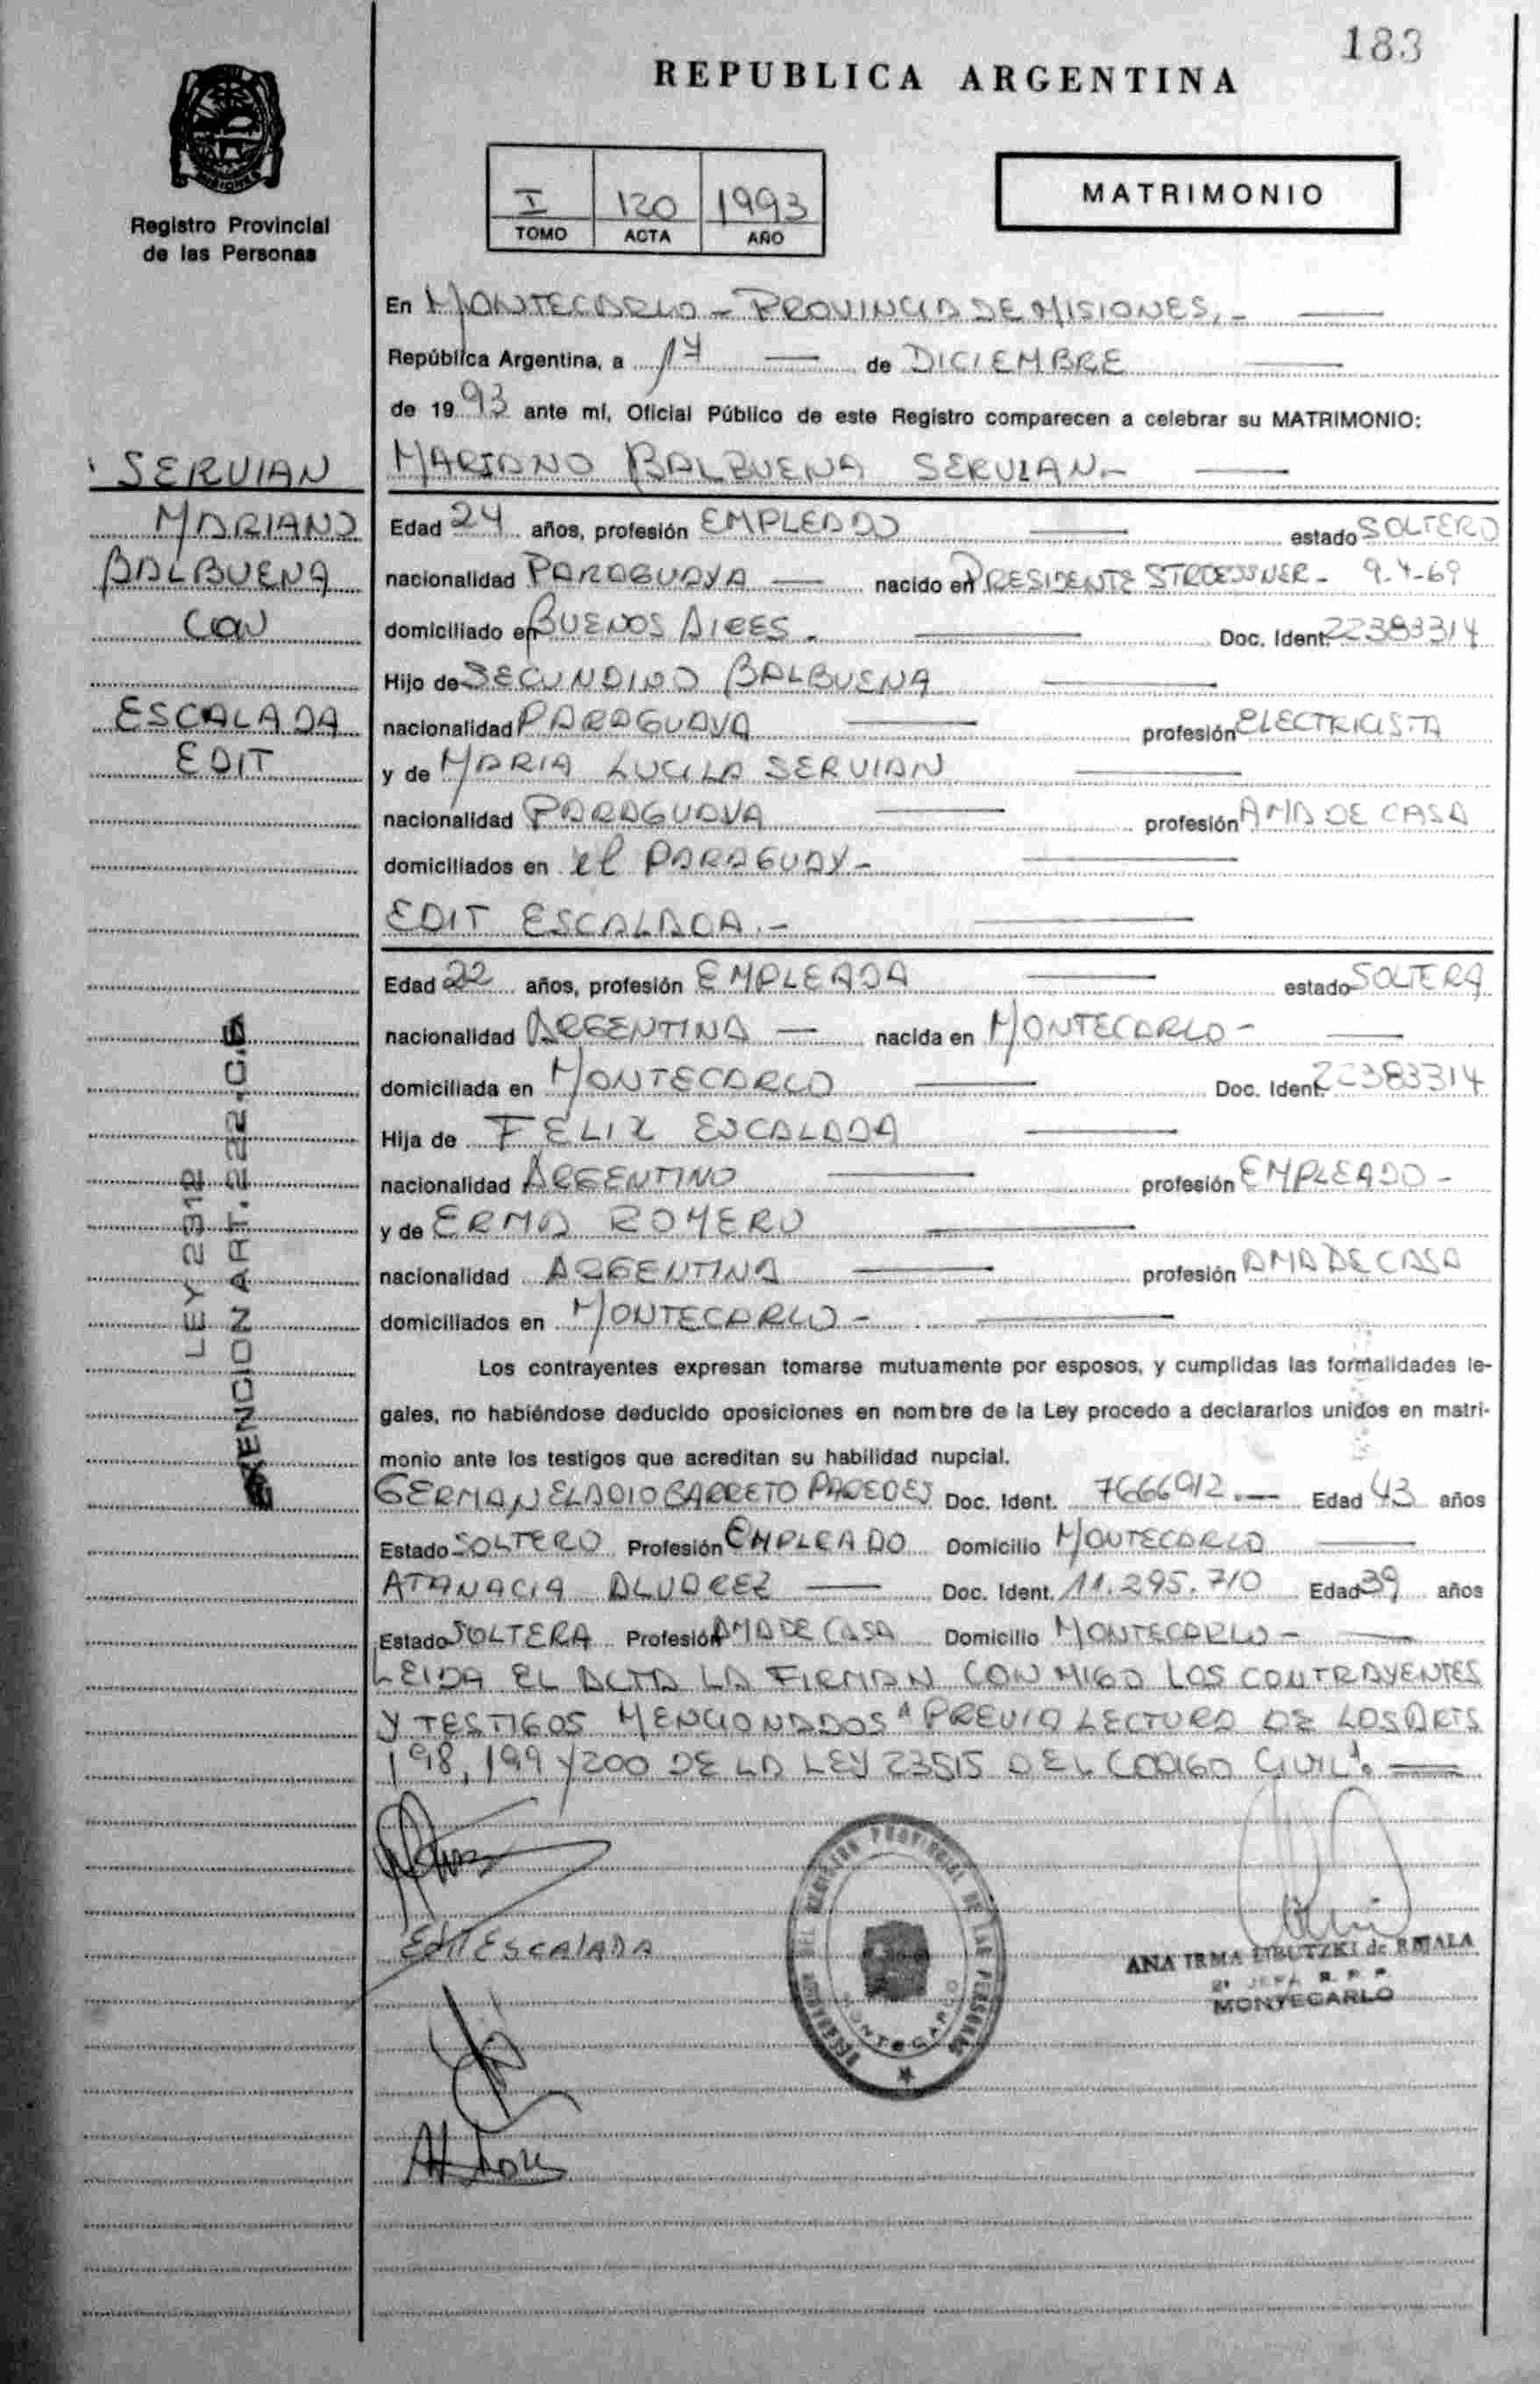 183
REPUBLICA ARGENTINA
MISIONES
Registro Provincial
de las Personas
I 120 1993
TOMO ACTA AÑO
MATRIMONIO
En MONTECARLO - PROVINCIA DE MISIONES.-
República Argentina, a 17 de DICIEMBRE
de 1993 ante mí, Oficial Público de este Registro comparecen a celebrar su MATRIMONIO:
MARIANO BALBUENA SERVIAN.-
SERVIAN
MARIANO
BALBUENA
CON
ESCALADA
EDIT
Edad 24 años, profesión EMPLEADO estado SOLTERO
nacionalidad PARAGUAYA nacido en PRESIDENTE STROESSNER - 9-4-69
domiciliado en BUENOS AIRES - Doc. Ident. 22383314
Hijo de SECUNDINO BALBUENA
nacionalidad PARAGUAYA profesión ELECTRICISTA
y de MARIA LUCILA SERVIAN
nacionalidad PARAGUAYA profesión AMA DE CASA
domiciliados en el PARAGUAY-
EDIT ESCALADA.-
Edad 22 años, profesión EMPLEADA estado SOLTERA
nacionalidad ARGENTINA nacida en MONTECARLO-
domiciliada en MONTECARLO Doc. Ident. 22383314
Hija de FELIX ESCALADA
nacionalidad ARGENTINO profesión EMPLEADO -
y de ERMA ROMERO
nacionalidad ARGENTINA profesión AMA DE CASA
domiciliados en MONTECARLO-
LEY 2312
EXENCION ART. 222-C.F.
Los contrayentes expresan tomarse mutuamente por esposos, y cumplidas las formalidades le-
gales, no habiéndose deducido oposiciones en nombre de la Ley procedo a declararlos unidos en matri-
monio ante los testigos que acreditan su habilidad nupcial.
GERMAN ELADIO BARRETO PAREDES Doc. Ident. 7666912.- Edad 43 años
Estado SOLTERO Profesión EMPLEADO Domicilio MONTECARLO
ATANACIA ALVAREZ Doc. Ident. 11.295.710 Edad 39 años
Estado SOLTERA Profesión AMA DE CASA Domicilio MONTECARLO-
LEIDA EL ACTA LA FIRMAN CON MIGO LOS CONTRAYENTES
Y TESTIGOS MENCIONADOS "PREVIO LECTURA DE LOS ARTS
198, 199 Y 200 DE LA LEY 23515 DEL CODIGO CIVIL".
Edit EscalADA
REGISTRO PROVINCIAL DE LAS PERSONAS
MONTECARLO
ANA IRMA de
2° JEFA R. P. P.
MONTECARLO